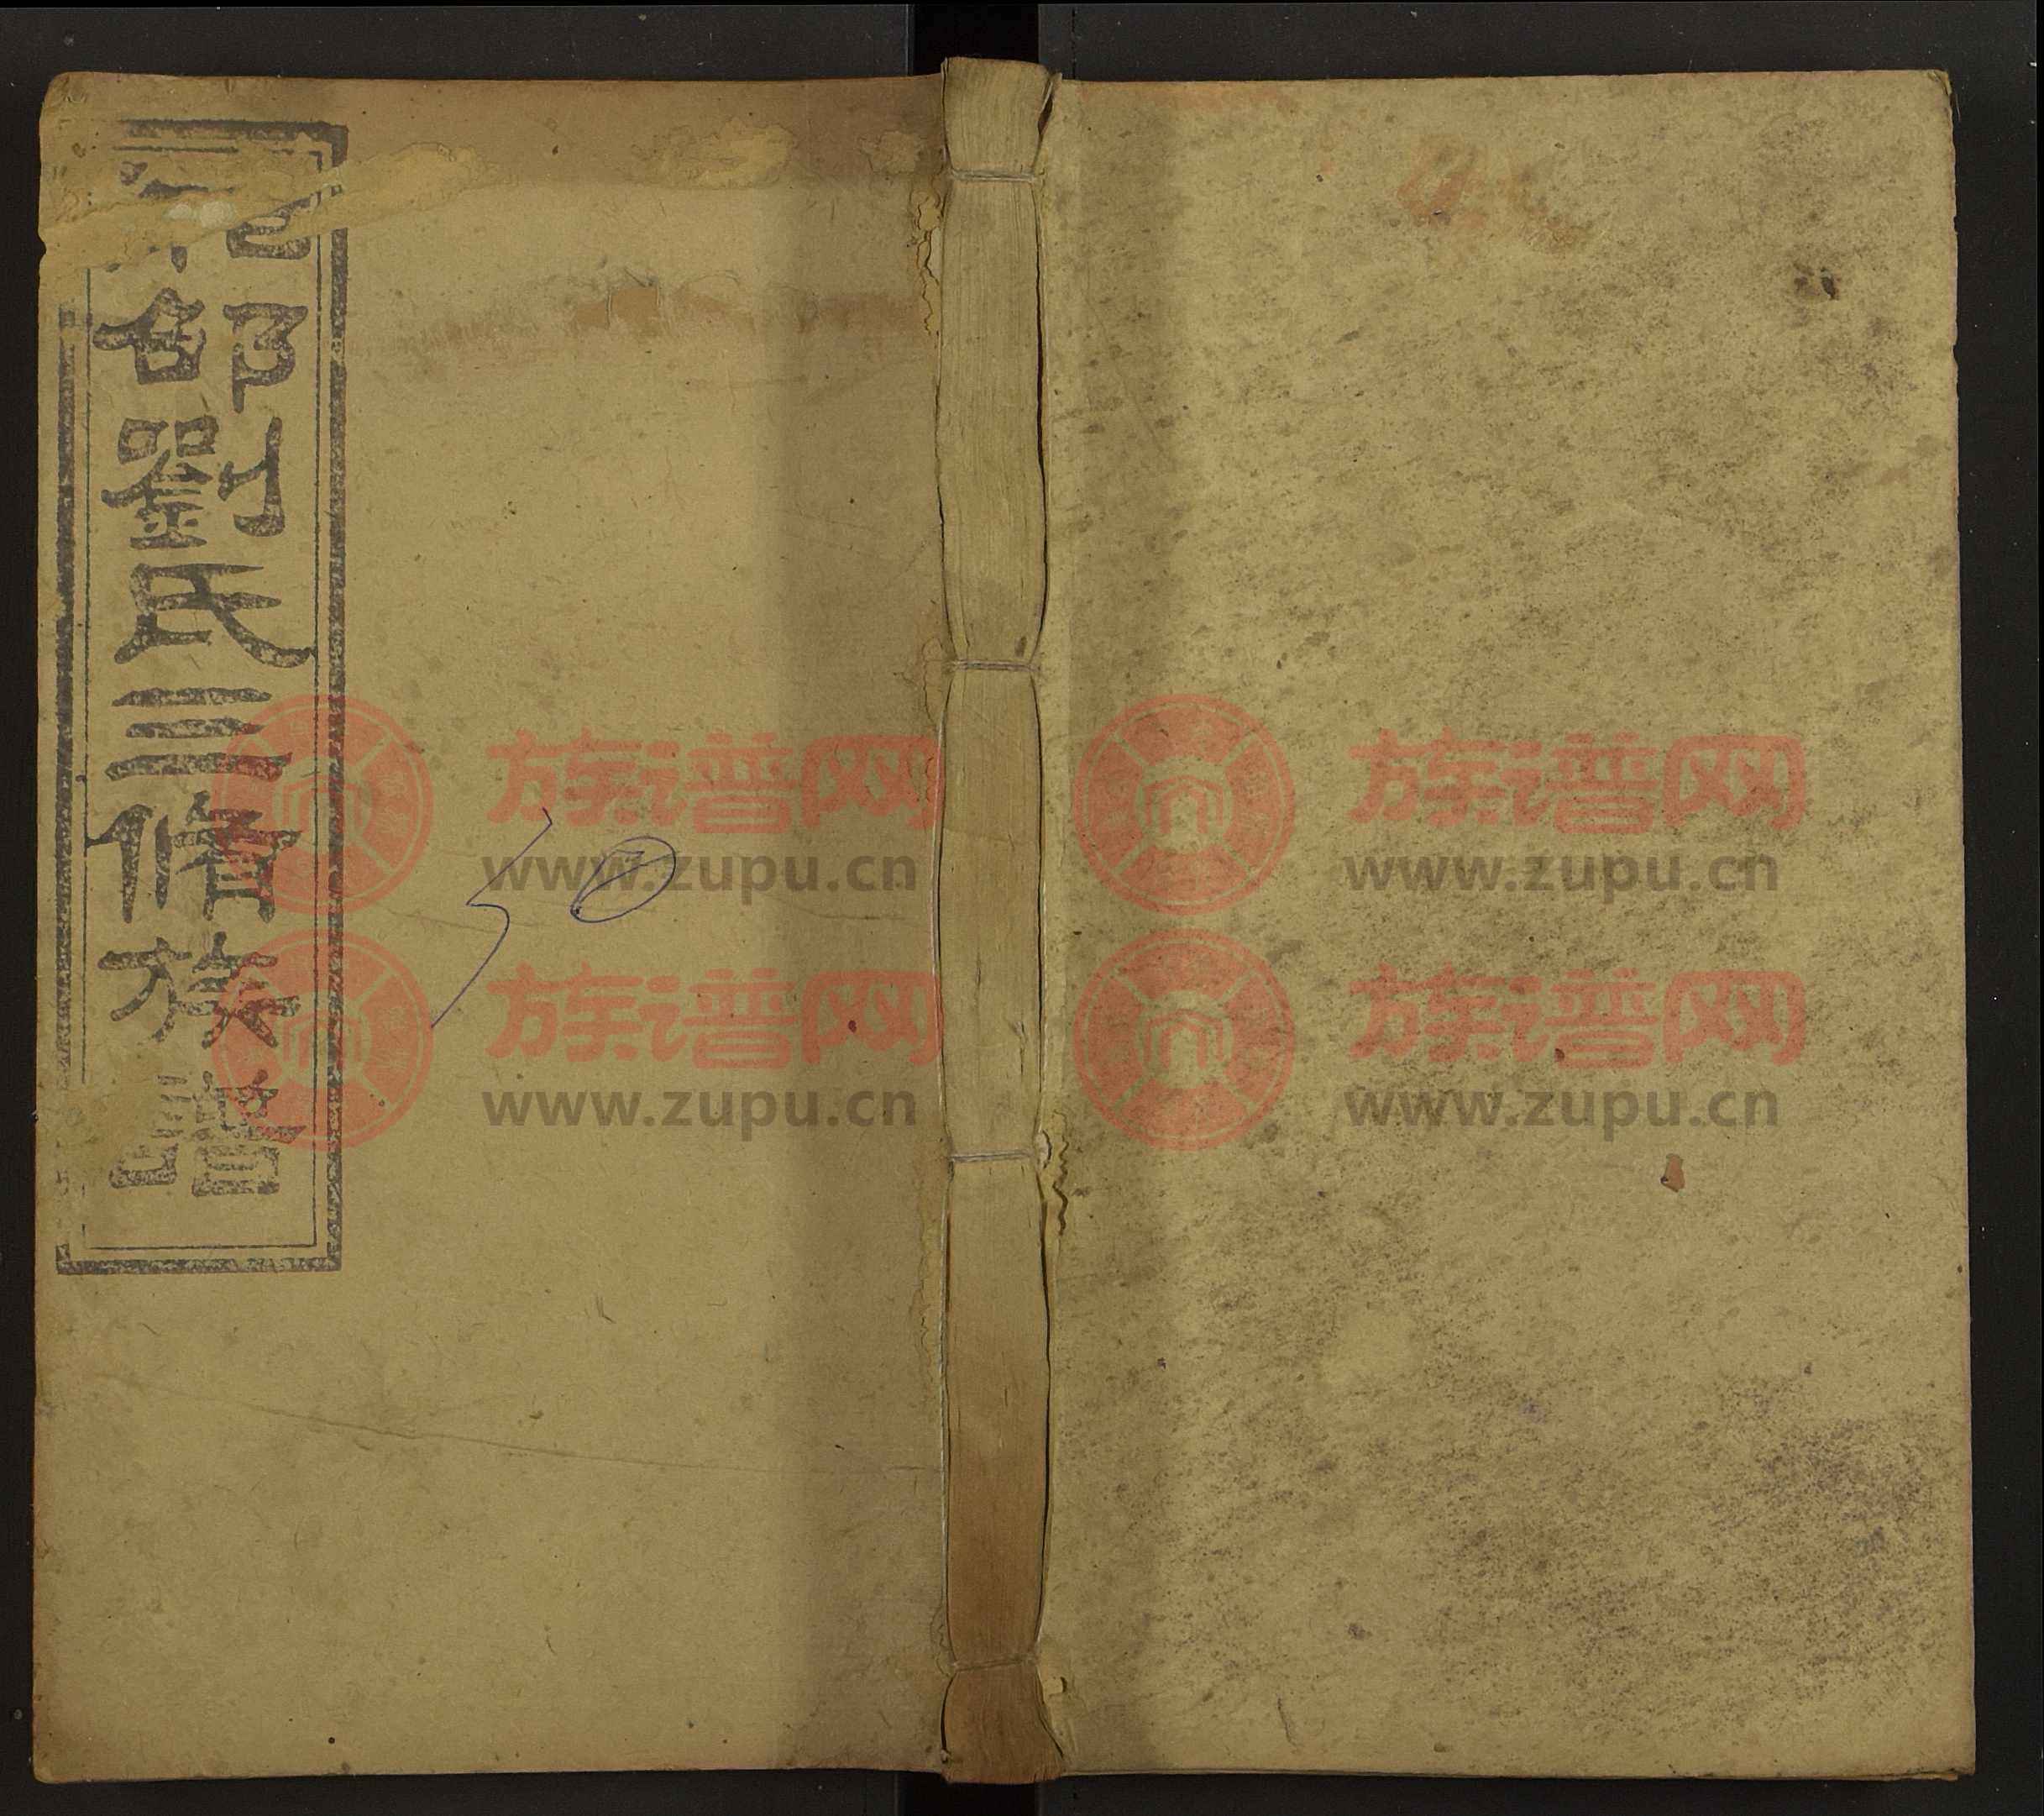 邵劉氏三脩族譜
50
族谱网
www.zupu.cn
族谱网
www.zupu.cn
族谱网
www.zupu.cn
族谱网
www.zupu.cn